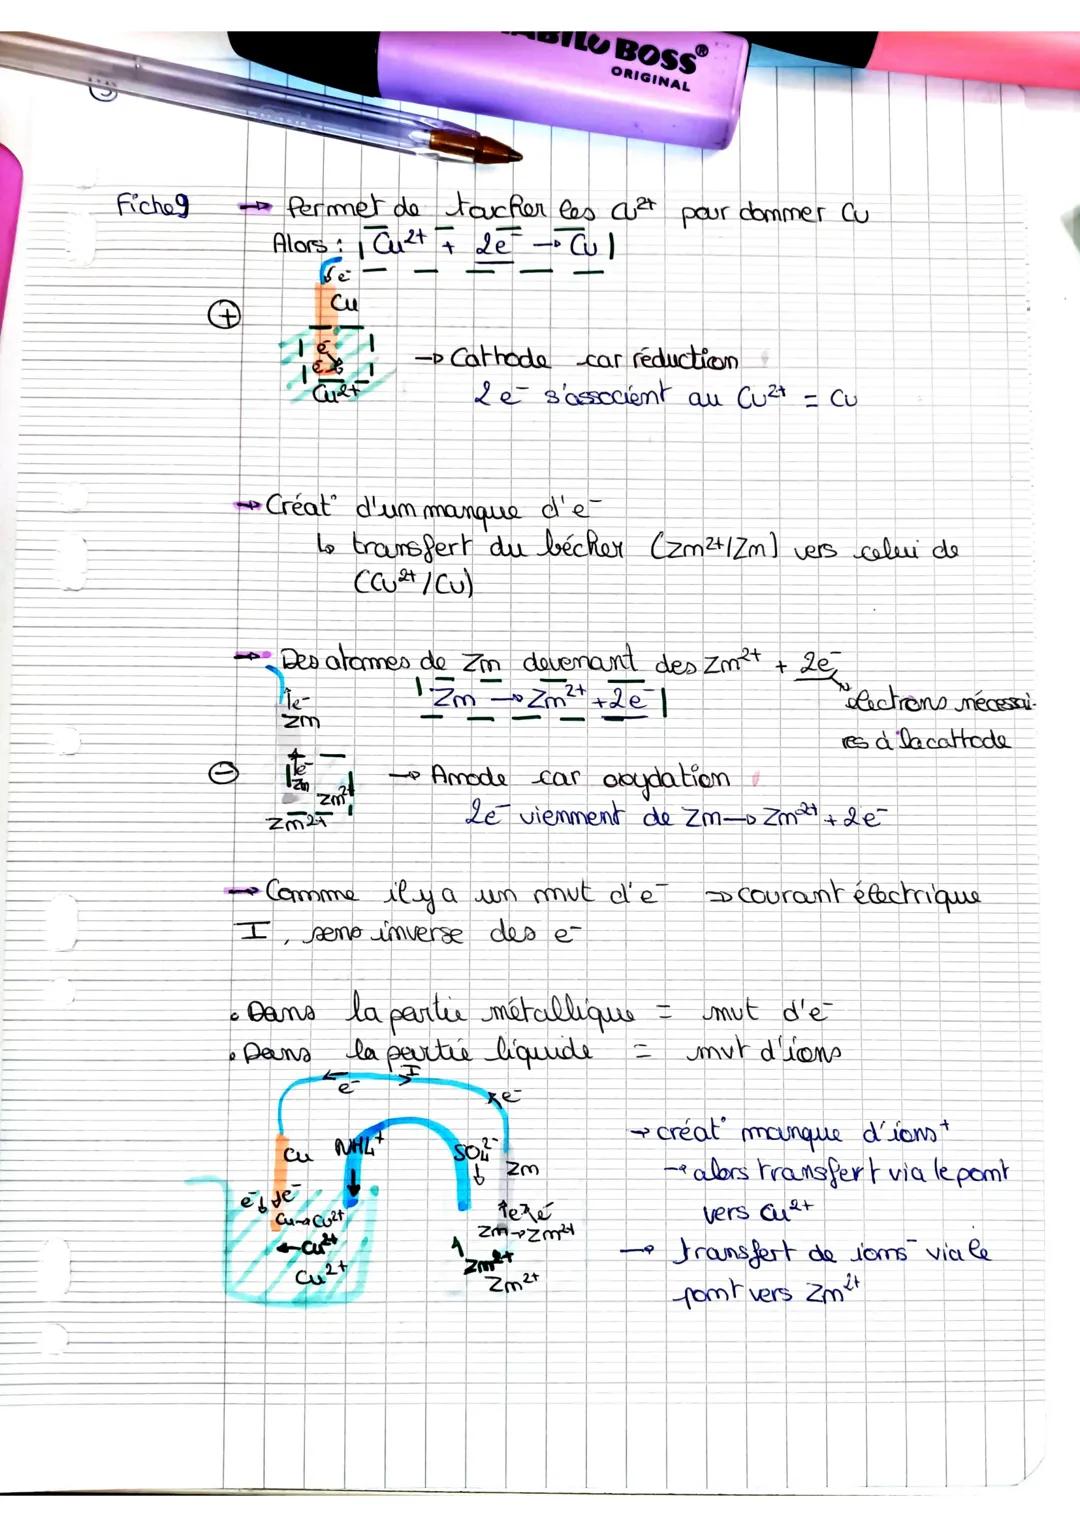 STABILO BOSS®
ORIGINAL
Fiche 9
→ Permet de toucher les Cu²⁺ pour donner Cu
Alors : Cu²⁺ + 2e⁻ → Cu
e⁻
Cu
+
e⁻
e⁻
Cu²⁺
→ Cathode car réduction
2e⁻ s'associent au Cu²⁺ = Cu
→ Créat° d'un manque d'e⁻
↳ transfert du bécher (Zn²⁺/Zn) vers celui de
(Cu²⁺/Cu)
→ Des atomes de Zn devenant des Zn²⁺ + 2e⁻
Zn → Zn²⁺ + 2e⁻
électrons nécessai-
res à la cathode
↑e⁻
Zn
−
↑e⁻
Zn
Zn²⁺
Zn²⁺
→ Anode car oxydation
2e⁻ viennent de Zn → Zn²⁺ + 2e⁻
→ Comme il y a un mvt d'e⁻ ⇒ courant électrique
I, sens inverse des e⁻
• Dans la partie métallique = mvt d'e⁻
• Dans la partie liquide = mvt d'ions
e⁻
I
e⁻
Cu
NH₄⁺
SO₄²⁻
Zn
e⁻↓ ↓e⁻
Cu → Cu²⁺
← Cu²⁺
Cu²⁺
↑e⁻ e⁻
Zn → Zn²⁺
Zn²⁺
Zn²⁺
→ créat° manque d'ions⁺
→ alors transfert via le pont
vers Cu²⁺
→ transfert de ions⁻ via le
pont vers Zn²⁺